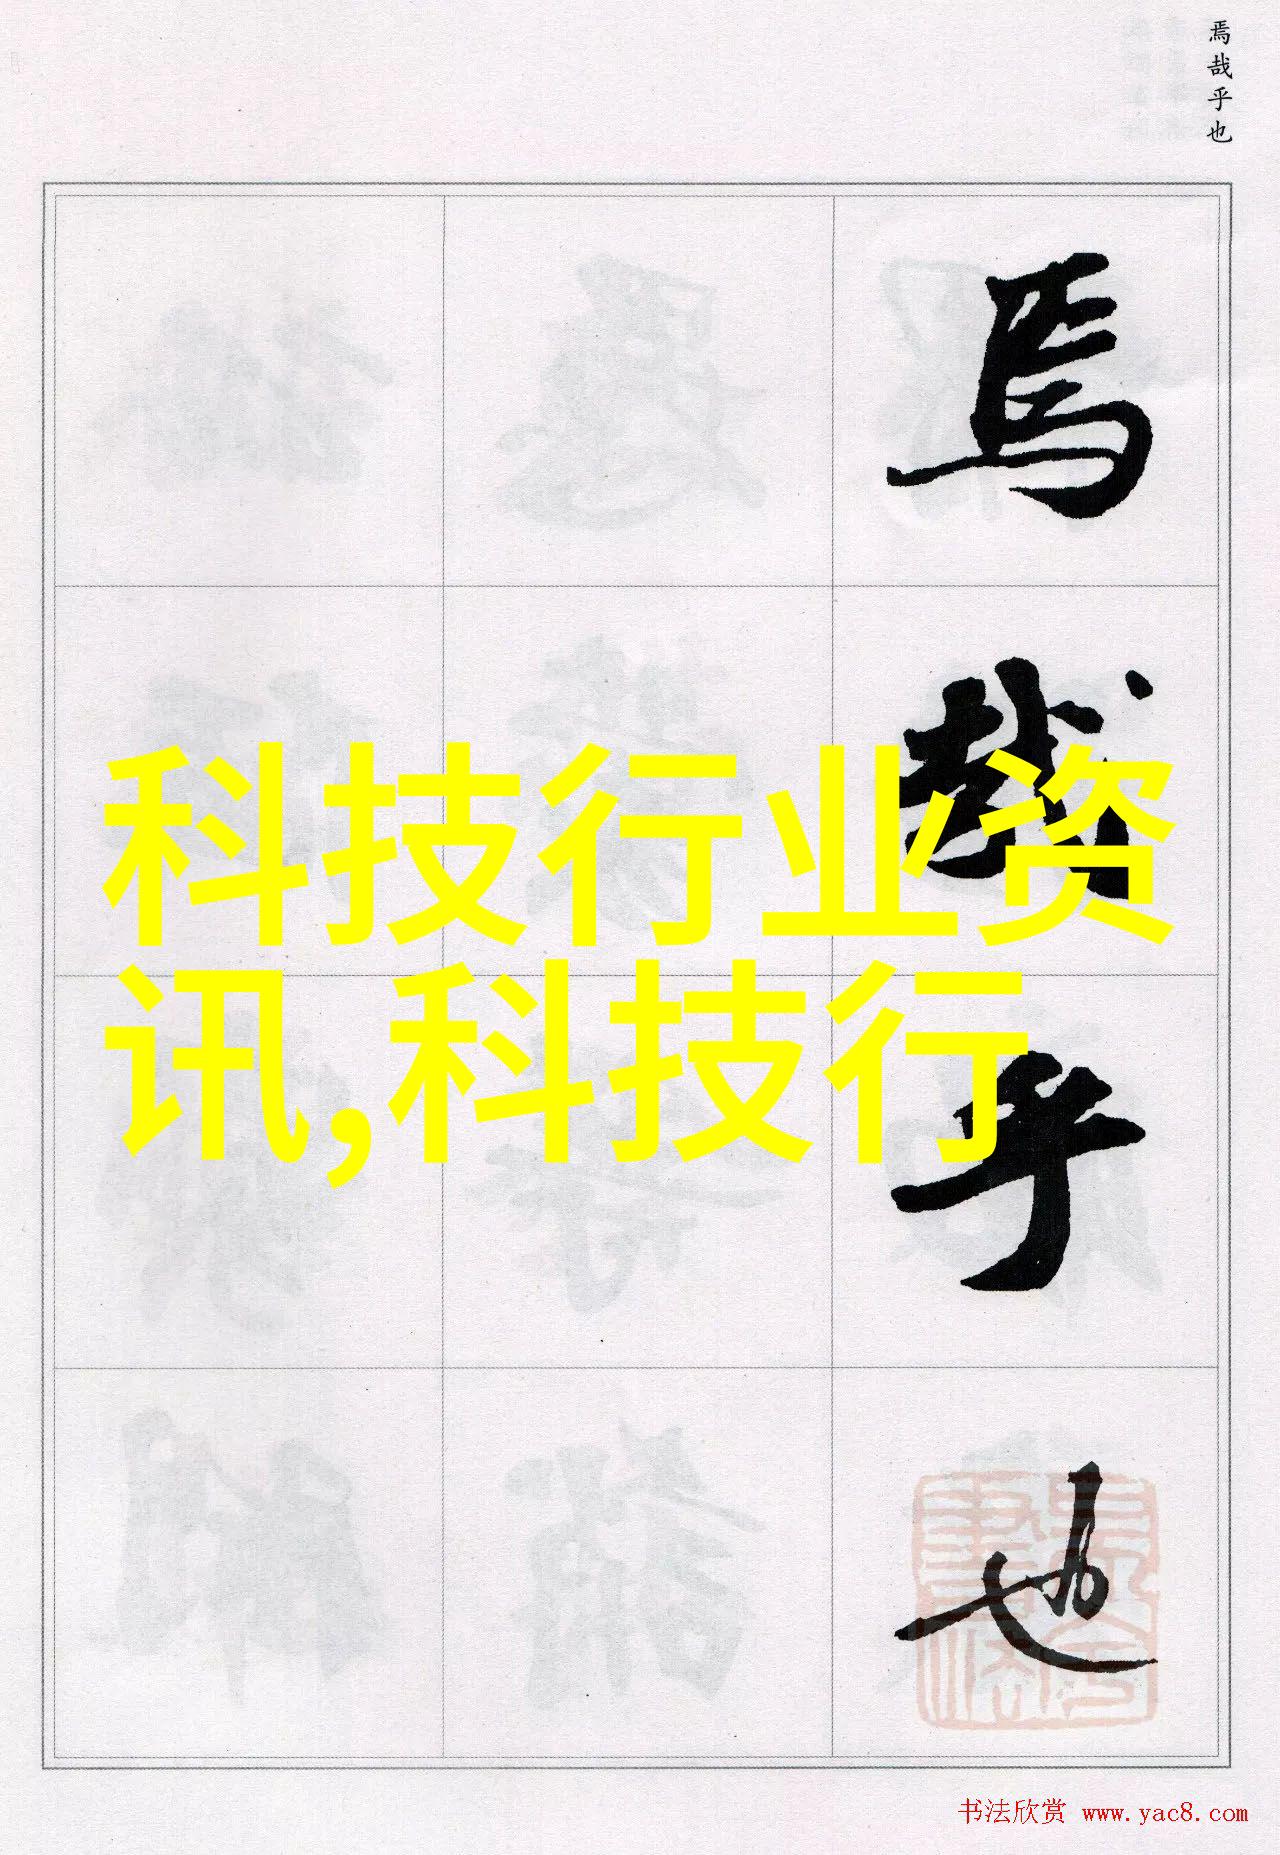 焉哉乎也
焉
哉
乎
也
科技行业资
讯,科技行
书法欣赏 www.yac8.com